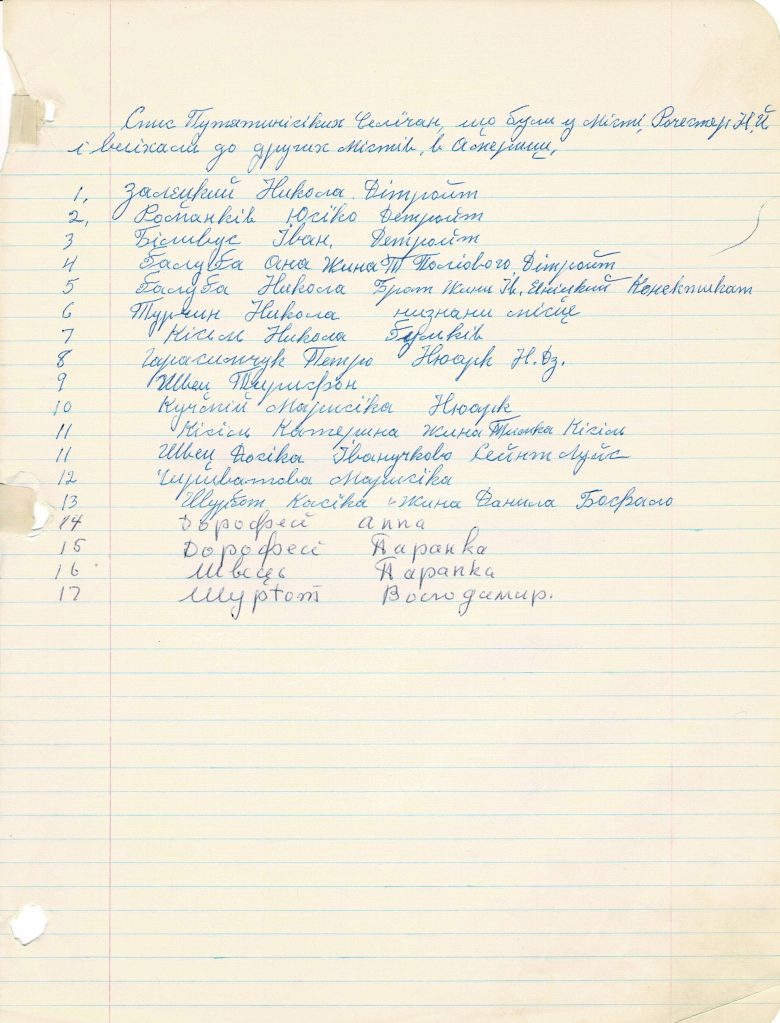 Спис Путятинісіких Селічан, що були у Місті, Рочестер Н,Й
і виіхали до других містів, в Америці,
1, Залецкий Никола. Дітройт
2, Романків Юсіко Детройт
3 Біливус Іван, Детройт
4 Балуба Ана Жина Т Поліового Дітройт
5 Балуба Никола Брат Жини Ів. Конектикат
6 Турчин Никола низнани місце
7 Кісіль Никола
8 Гарасимчук Петро Нюарк Н.Дз.
9 Швец
10 Марисіка Нюарк
11 Кісіль Катерина Жина Кісіль
11 Швец Досіка Іванучково Сейнт Луйс
12 Марисіка
13 Шурбот Касіка Жина Данила Босфало
14 Дорофей Анна
15 Дорофей Паранка
16 Швець Паранка
17 Володимир.